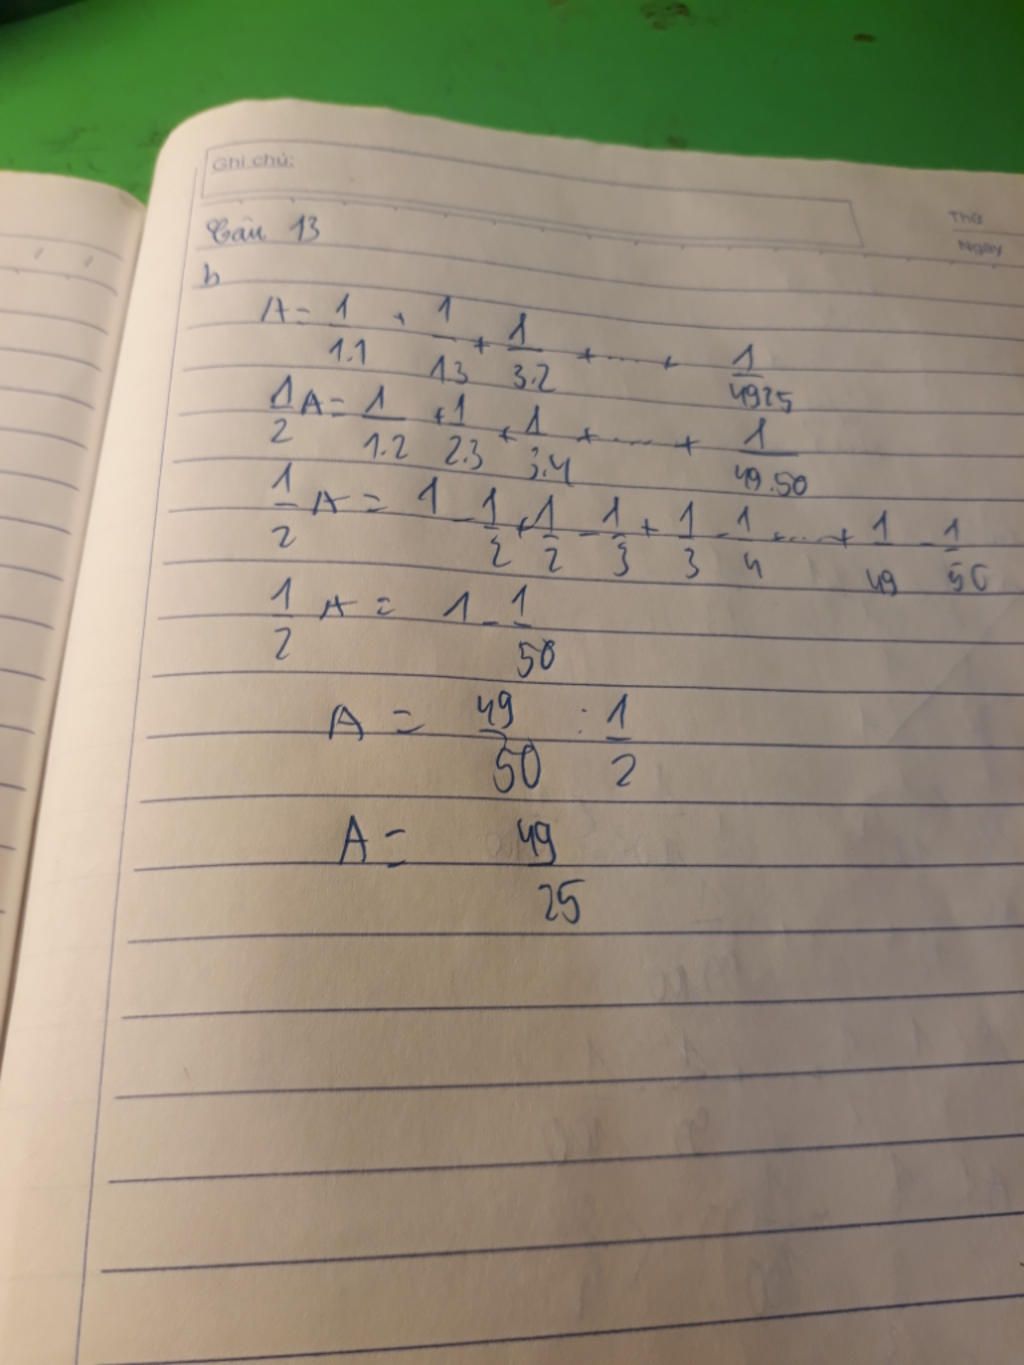 Ghi chú:
Thứ
Ngày
Câu 13
b
A = 1/1.1 + 1/1.3 + 1/3.2 + .... + 1/49 25
1/2 A = 1/1.2 + 1/2.3 + 1/3.4 + .... + 1/49.50
1/2 A = 1 - 1/2 + 1/2 - 1/3 + 1/3 - 1/4 + .... + 1/49 - 1/50
1/2 A = 1 - 1/50
A = 49/50 : 1/2
A = 49/25